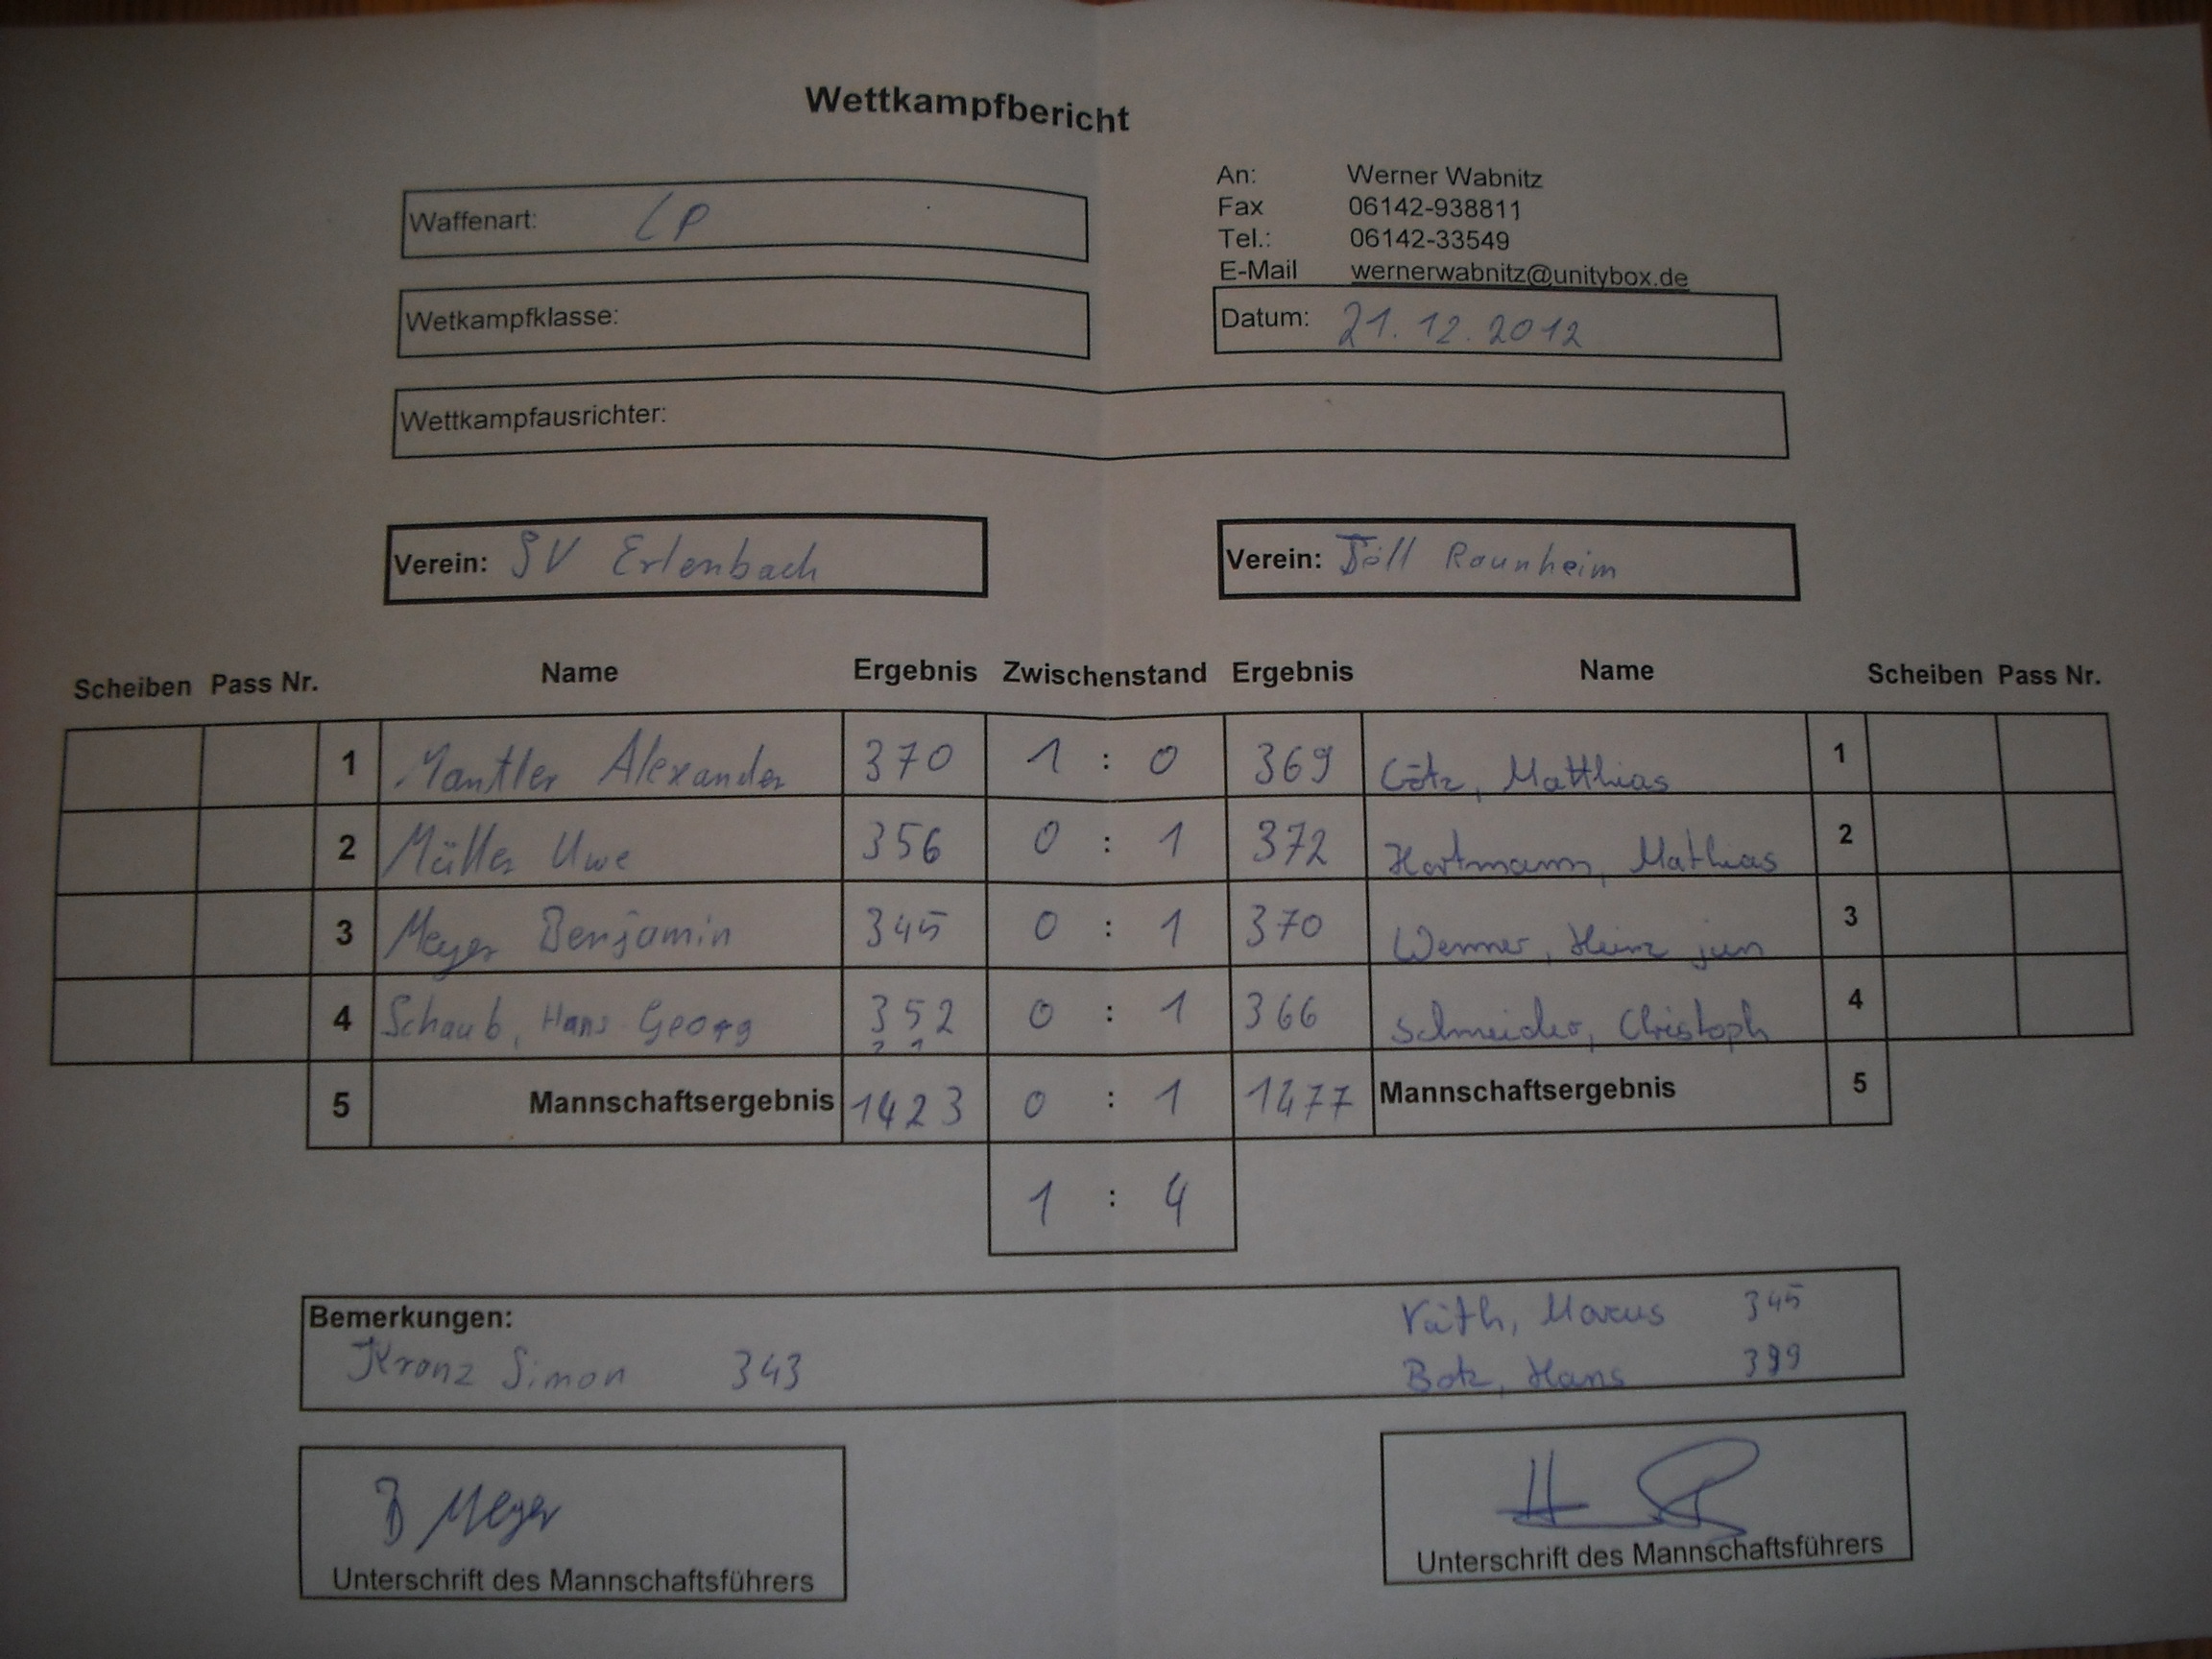 Wettkampfbericht
Waffenart: LP
An: Werner Wabnitz
Fax 06142-938811
Tel.: 06142-33549
E-Mail wernerwabnitz@unitybox.de
Wetkampfklasse:
Datum: 21.12.2012
Wettkampfausrichter:
Verein: SV Erlenbach
Verein: Töll Raunheim
Scheiben Pass Nr. Name Ergebnis Zwischenstand Ergebnis Name Scheiben Pass Nr.
1 Mantler Alexander 370 1 : 0 369 Götz, Matthias 1
2 Müller Uwe 356 0 : 1 372 Hartmann, Mathias 2
3 Meyer Benjamin 345 0 : 1 370 Werner, Heinz jun 3
4 Schaub, Hans Georg 352 0 : 1 366 Schneider, Christoph 4
2 1
5 Mannschaftsergebnis 1423 0 : 1 1477 Mannschaftsergebnis 5
1 : 4
Bemerkungen:
Väth, Marcus 345
Kranz Simon 343
Botz, Hans
B Meyer
Unterschrift des Mannschaftsführers
Unterschrift des Mannschaftsführers